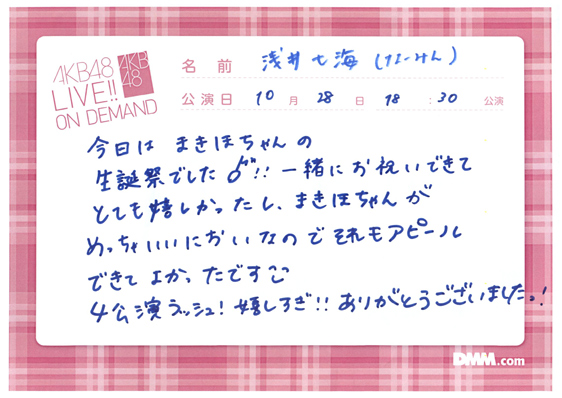 AKB48
LIVE!!
ON DEMAND
AKB
48
名前 浅井七海(なーみん)
公演日 10月28日 18:30公演
今日は まきほちゃんの
生誕祭でした♂!! 一緒にお祝いできて
とても嬉しかったし、まきほちゃんが
めっちゃいいにおいなので それもアピール
できて よかったです。
4公演ラッシュ! 嬉しすぎ!! ありがとうございましたっ!
DMM.com